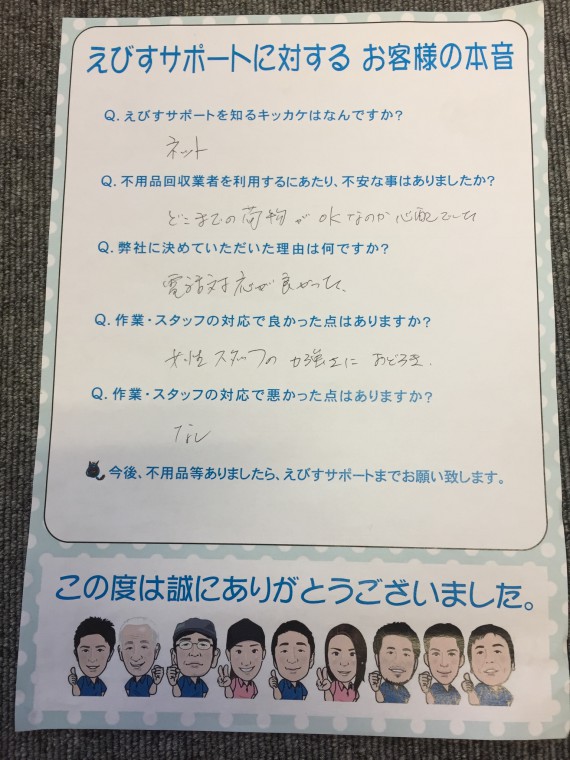 えびすサポートに対する お客様の本音
Q. えびすサポートを知るキッカケはなんですか？
ネット
Q. 不用品回収業者を利用するにあたり、不安な事はありましたか？
どこまでの荷物がOKなのか心配でした
Q. 弊社に決めていただいた理由は何ですか？
電話対応が良かった、
Q. 作業・スタッフの対応で良かった点はありますか？
女性スタッフの力強さにおどろき.
Q. 作業・スタッフの対応で悪かった点はありますか？
なし
今後、不用品等ありましたら、えびすサポートまでお願い致します。
この度は誠にありがとうございました。